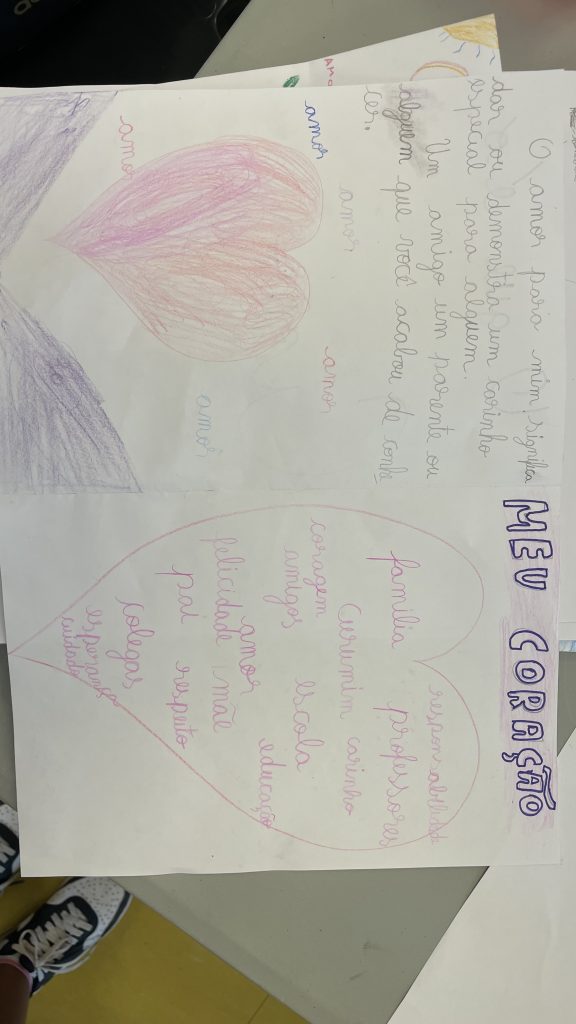 O amor para mim significa
dar ou demonstra um carinho
especial para alguem.
Um amigo um parente ou
alguem que você acabou de conhe
cer.
amor
amor
amor
amor
amor
AMO
MEU CORAÇÃO
responsabilidade
familia professores
Curumim carinho
coragem
amigos escola
amor educação
felicidade mãe
pai respeito
colegas
esperança
cuidado